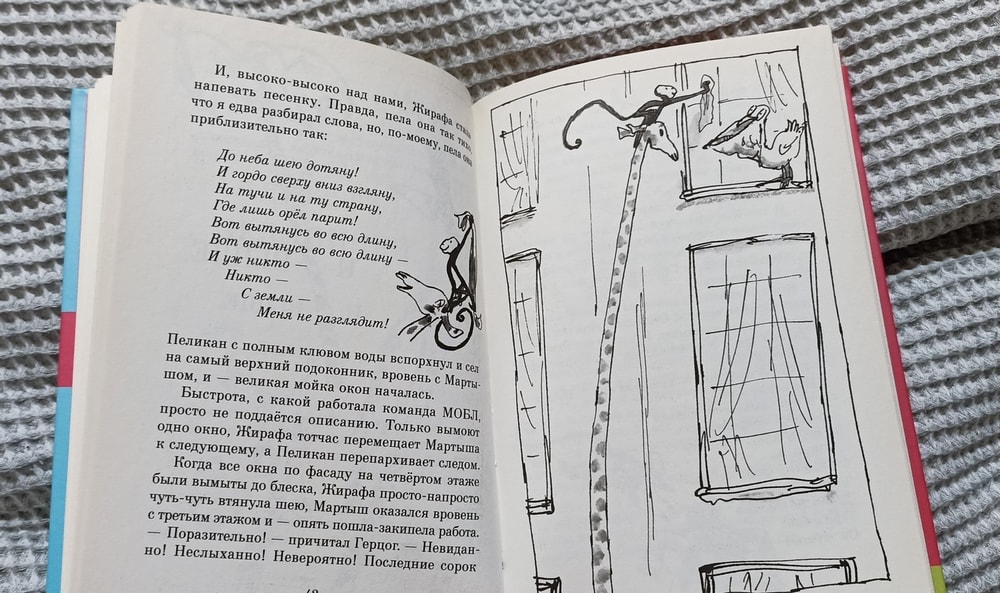 И, высоко-высоко над нами, Жирафа стала
напевать песенку. Правда, пела она так тихо,
что я едва разбирал слова, но, по-моему, пела она
приблизительно так:
До неба шею дотяну!
И гордо сверху вниз взгляну,
На тучи и на ту страну,
Где лишь орёл парит!
Вот вытянусь во всю длину,
Вот вытянусь во всю длину —
И уж никто —
Никто —
С земли —
Меня не разглядит!
Пеликан с полным клювом воды вспорхнул и сел
на самый верхний подоконник, вровень с Марты-
шом, и — великая мойка окон началась.
Быстрота, с какой работала команда МОБЛ,
просто не поддаётся описанию. Только вымоют
одно окно, Жирафа тотчас перемещает Мартыша
к следующему, а Пеликан перепархивает следом.
Когда все окна по фасаду на четвёртом этаже
были вымыты до блеска, Жирафа просто-напросто
чуть-чуть втянула шею, Мартыш оказался вровень
с третьим этажом и — опять пошла-закипела работа.
— Поразительно! — причитал Герцог. — Невидан-
но! Неслыханно! Невероятно! Последние сорок